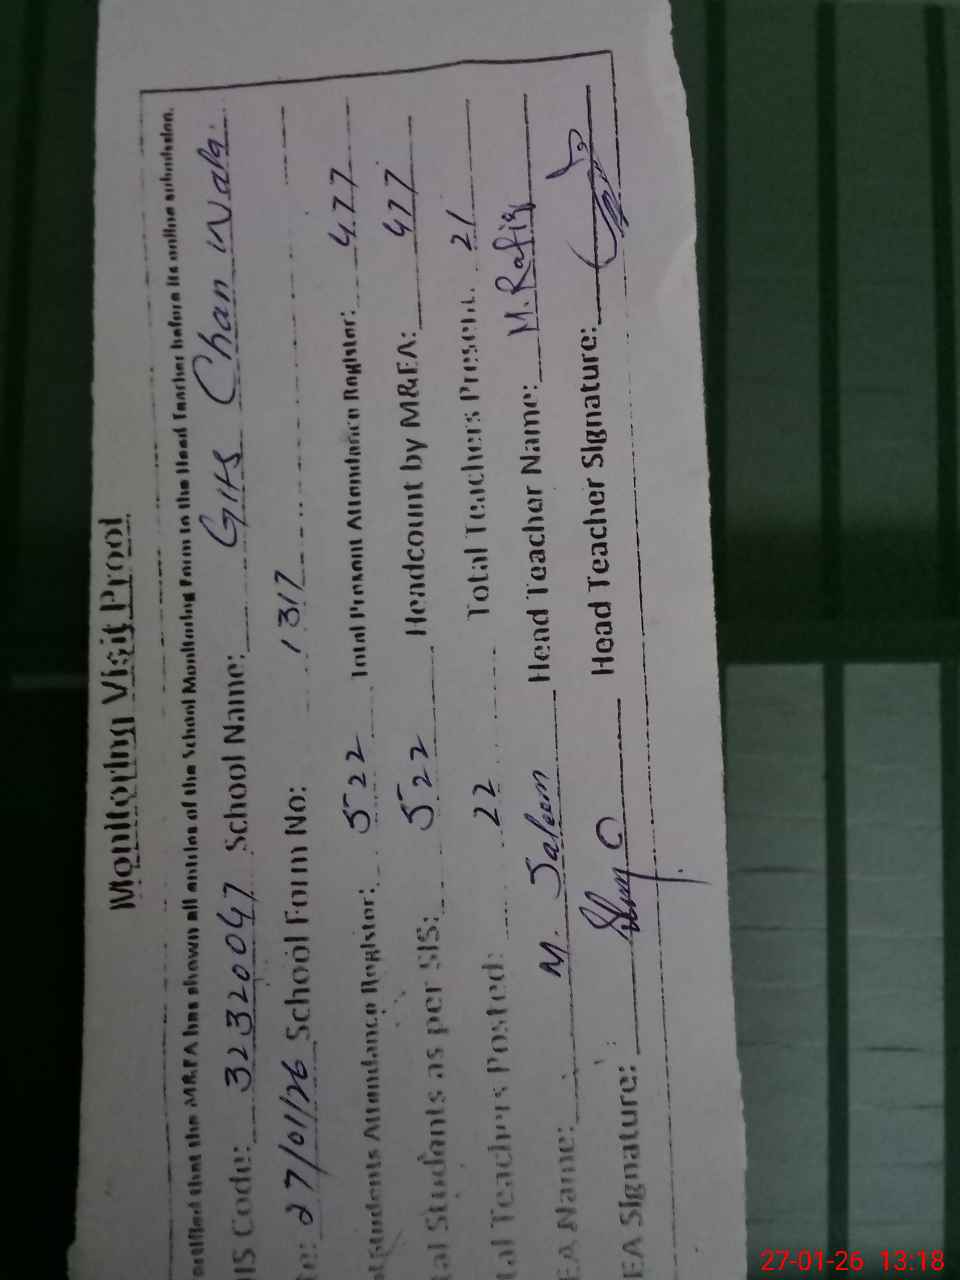 Monitoring Visit Proof
that the M&EA has shown all entries of the School Monitoring Form to the Head Teacher before its online submission.
IS Code: 32320047 School Name: GHS Chan Wala.
27/01/26 School Form No: 1317
Students Attendance Register: 522 Total Present Attendance Register: 477
tal Students as per SIS: 522 Headcount by M&EA: 477
tal Teachers Posted: 22 Total Teachers Present: 21
EA Name: M. Saleem Head Teacher Name: M. Rafiq
EA Signature: Head Teacher Signature:
27-01-26 13:18